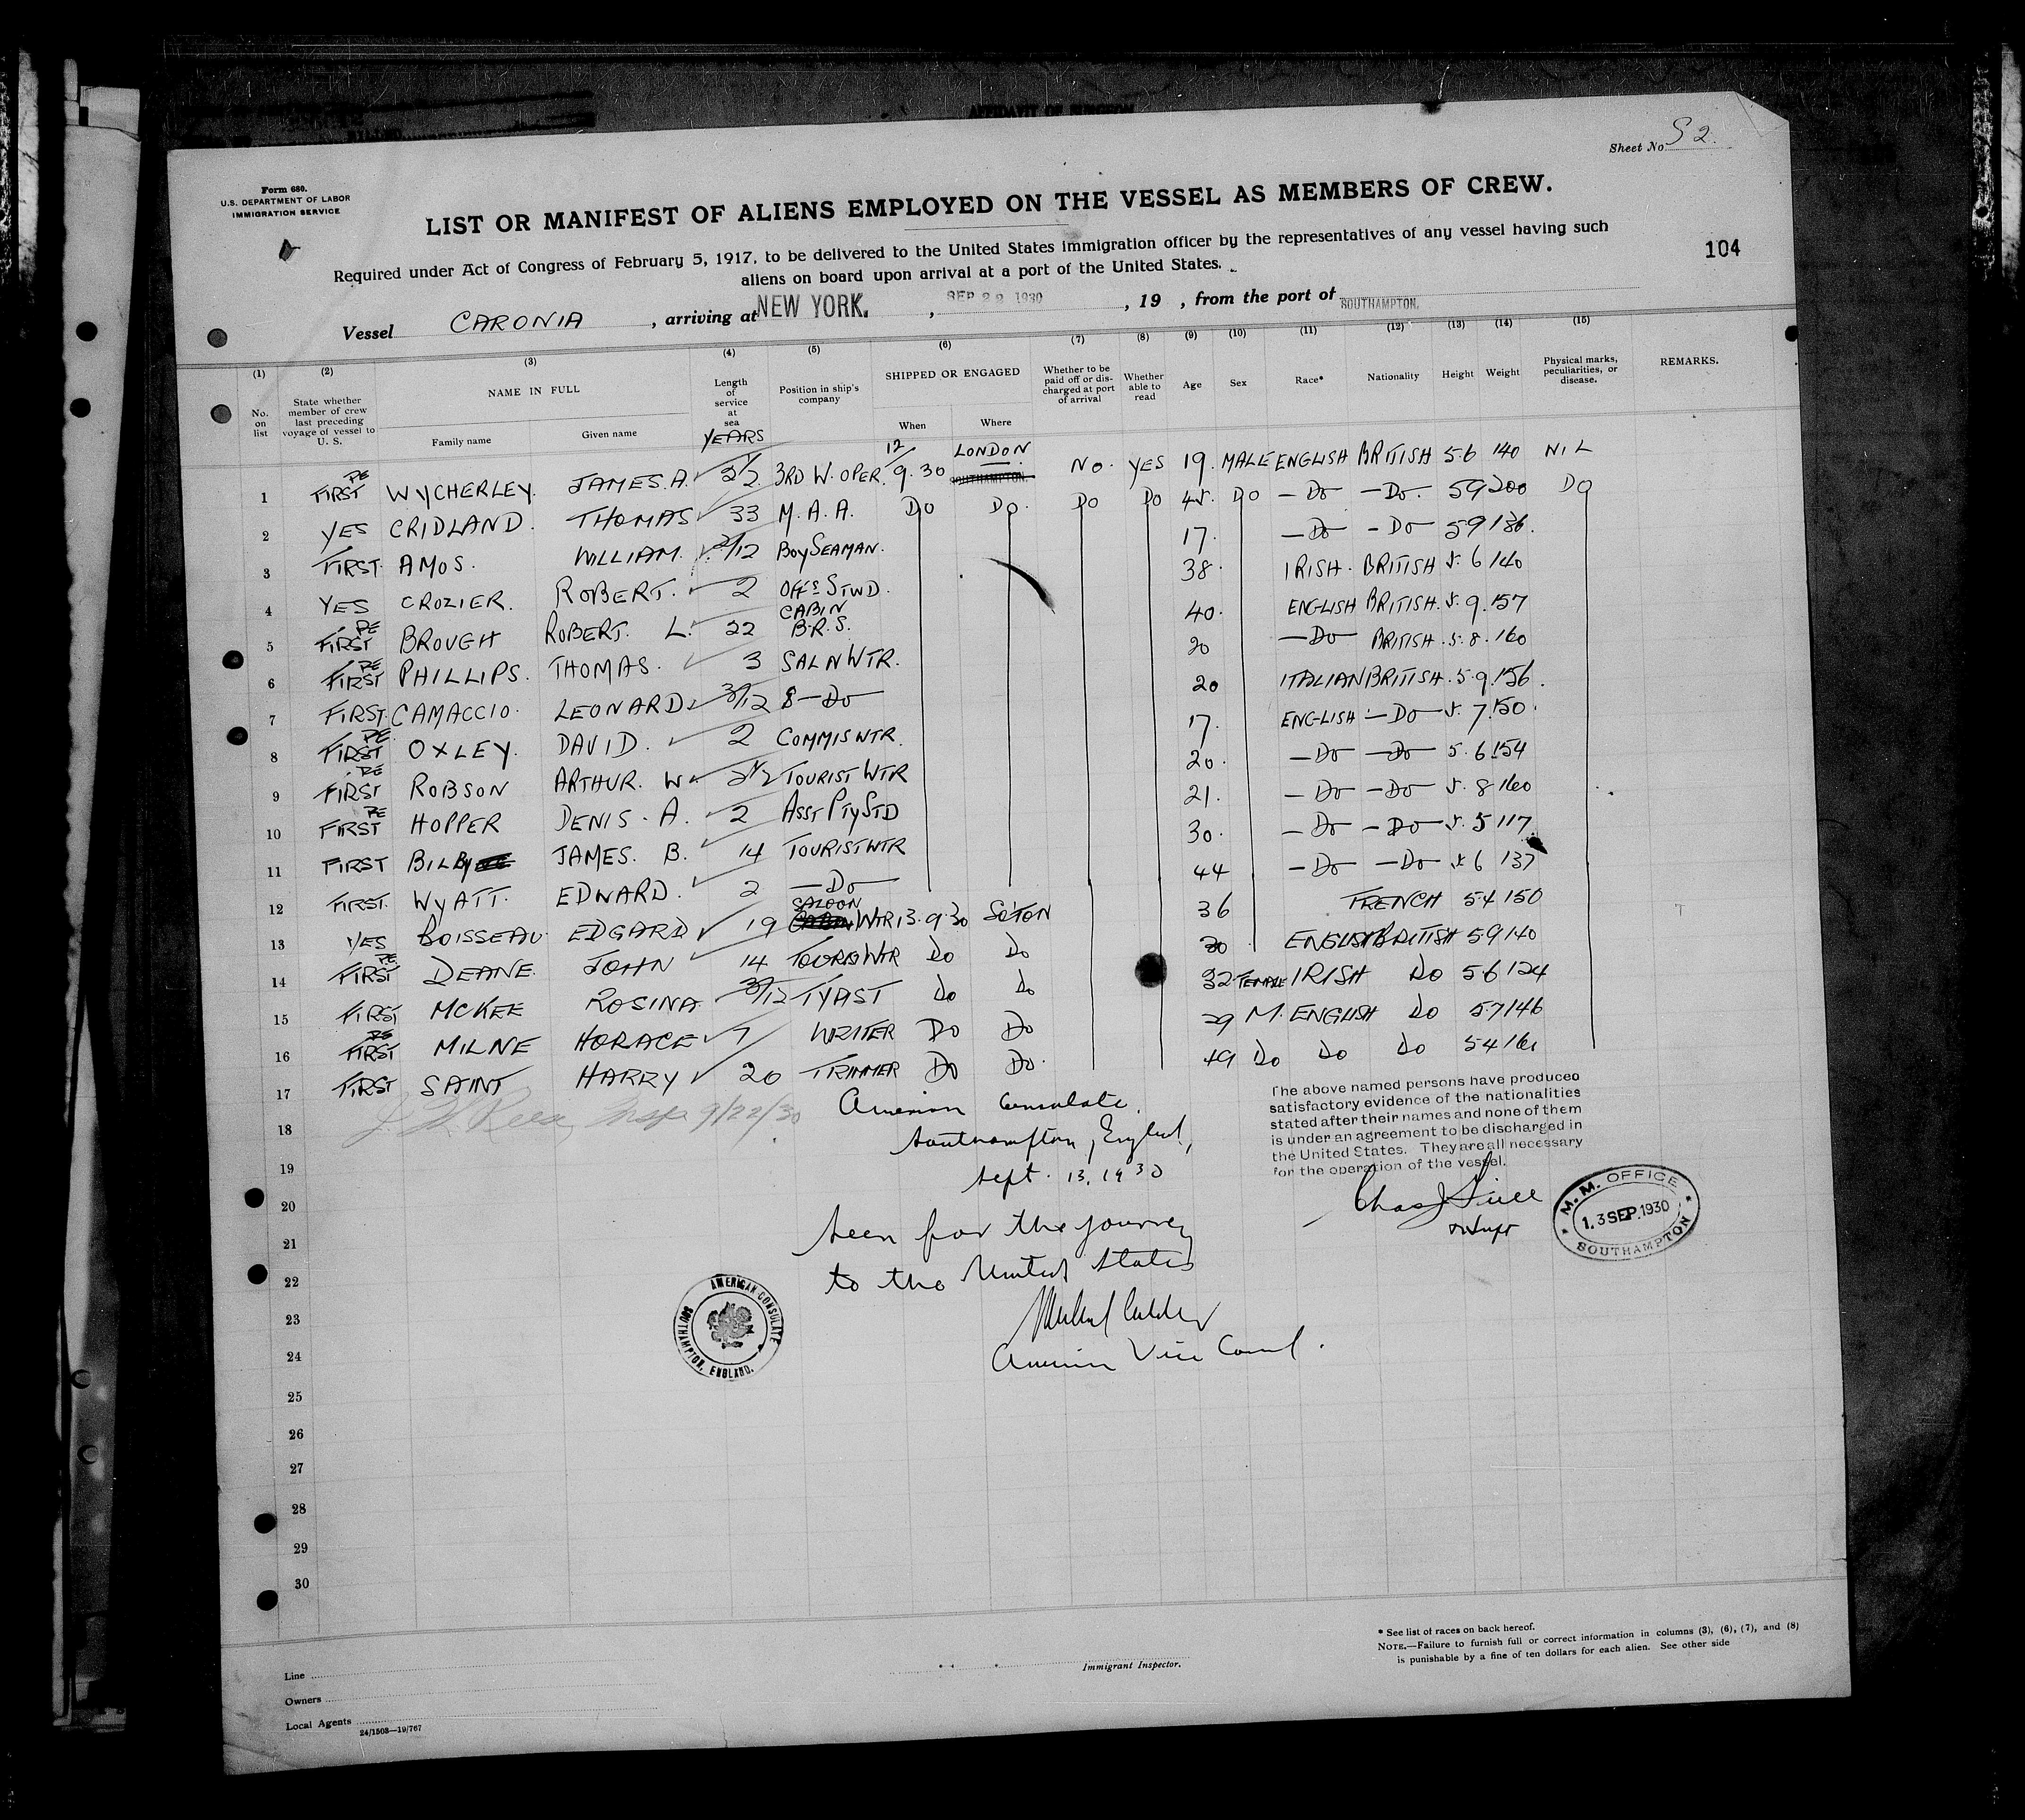 AFFIDAVIT OF SURGEON
Sheet No. S 2.
Form 680.
U.S. DEPARTMENT OF LABOR
IMMIGRATION SERVICE
LIST OR MANIFEST OF ALIENS EMPLOYED ON THE VESSEL AS MEMBERS OF CREW.
Required under Act of Congress of February 5, 1917, to be delivered to the United States immigration officer by the representatives of any vessel having such
aliens on board upon arrival at a port of the United States.
104
Vessel CARONIA, arriving at NEW YORK, SEP 22 1930, 19 , from the port of SOUTHAMPTON.
(1) (2) (3) (4) (5) (6) (7) (8) (9) (10) (11) (12) (13) (14) (15)
No. on list State whether member of crew last preceding voyage of vessel to U. S. NAME IN FULL Family name Given name Length of service at sea YEARS Position in ship's company SHIPPED OR ENGAGED When Where Whether to be paid off or discharged at port of arrival Whether able to read Age Sex Race* Nationality Height Weight Physical marks, peculiarities, or disease. REMARKS.
1 FIRST RE WYCHERLEY. JAMES.A. 2½ 3RD W.OPER. 12/9.30 LONDON SOUTHAMPTON. NO. YES 19. MALE ENGLISH BRITISH 5.6 140 NIL
2 YES CRIDLAND. THOMAS 33 M.A.A. DO DO. DO DO 45. DO —DO —DO. 59 200 DO
3 FIRST. AMOS. WILLIAM. 3/12 BOY SEAMAN. 17. —DO —DO 59 136.
4 YES CROZIER. ROBERT. 2 OFF'S STWD. 38. IRISH. BRITISH 5.6 140
5 FIRST RE BROUGH ROBERT. L. 22 CABIN B.R.S. 40. ENGLISH BRITISH. 5.9.157
6 FIRST RE PHILLIPS. THOMAS. 3 SALN WTR. 20 —DO BRITISH. 5.8.160
7 FIRST. CAMACCIO. LEONARD. 3/12 —DO 20 ITALIAN BRITISH. 5.9.156.
8 FIRST RE. OXLEY. DAVID. 2 COMMIS WTR. 17. ENGLISH —DO 5.7.150.
9 FIRST RE ROBSON ARTHUR. W. 2½ TOURIST WTR 20. —DO —DO 5.6 154
10 FIRST RE HOPPER DENIS. A. 2 ASST PTY STD 21. —DO —DO 5.8 160
11 FIRST BILBY JAMES. B. 14 TOURIST WTR 30. —DO —DO 5.5 117
12 FIRST. WYATT. EDWARD. 2 —DO 44 —DO —DO 5.6 137
13 YES BOISSEAU EDGARD 19 SALOON CABIN WTR 13.9.30 SO'TON 36 FRENCH 5.4 150
14 FIRST RE. DEANE. JOHN 14 TOURIST WTR DO DO 30 ENGLISH BRITISH 5.9 140
15 FIRST MCKEE ROSINA 3/12 TYPIST DO DO 32 FEMALE IRISH DO 5.6 124
16 FIRST RE MILNE HORACE 7 WRITER DO DO 29 M. ENGLISH DO 5.7 146
17 FIRST SAINT HARRY 20 TRIMMER DO DO. 49 DO DO DO 5.4 161
18
19
20
21
22
23
24
25
26
27
28
29
30
Insp. 9/22/30
American Consulate,
Southampton, England,
Sept. 13, 1930
Seen for the journey
to the United States
American Vice Consul.
AMERICAN CONSULATE
SOUTHAMPTON, ENGLAND.
The above named persons have produced
satisfactory evidence of the nationalities
stated after their names and none of them
is under an agreement to be discharged in
the United States. They are all necessary
for the operation of the vessel.
M. M. OFFICE
13 SEP. 1930
SOUTHAMPTON
Line
Owners
Local Agents
24/1503—19/767
Immigrant Inspector.
* See list of races on back hereof.
NOTE.—Failure to furnish full or correct information in columns (3), (6), (7), and (8)
is punishable by a fine of ten dollars for each alien. See other side